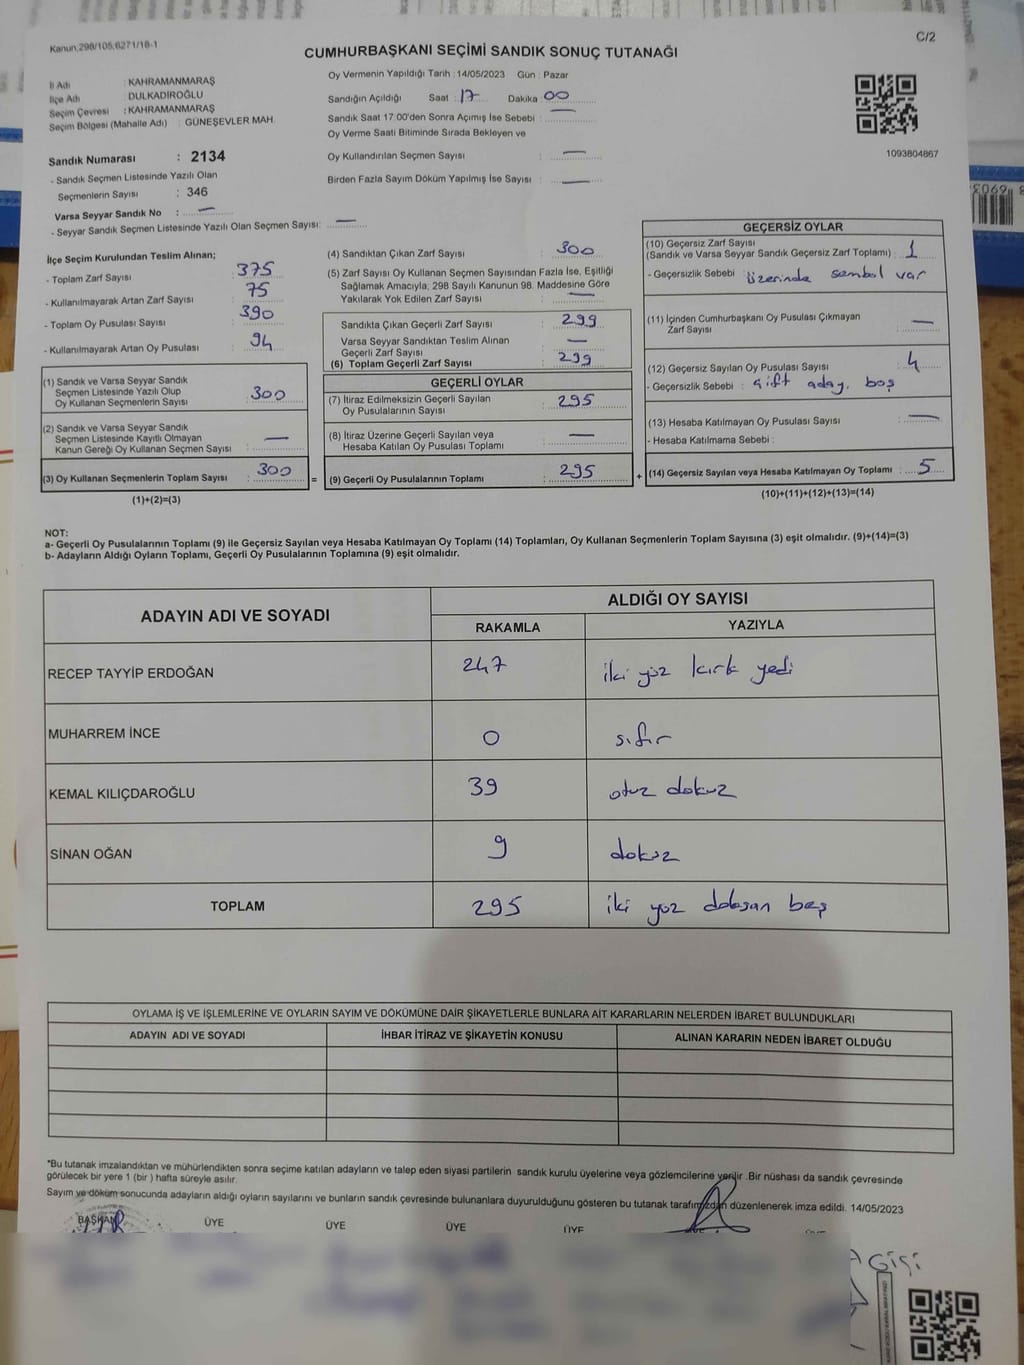 Kanun,298/105,6271/18-1
C/2
CUMHURBAŞKANI SEÇİMİ SANDIK SONUÇ TUTANAĞI
İl Adı : KAHRAMANMARAŞ
İlçe Adı : DULKADİROĞLU
Seçim Çevresi : KAHRAMANMARAŞ
Seçim Bölgesi (Mahalle Adı) : GÜNEŞEVLER MAH.
Sandık Numarası : 2134
- Sandık Seçmen Listesinde Yazılı Olan
Seçmenlerin Sayısı : 346
Varsa Seyyar Sandık No : —
- Seyyar Sandık Seçmen Listesinde Yazılı Olan Seçmen Sayısı: —
Oy Vermenin Yapıldığı Tarih : 14/05/2023 Gün : Pazar
Sandığın Açıldığı Saat : 17 Dakika : 00
Sandık Saat 17:00'den Sonra Açımış İse Sebebi : —
Oy Verme Saati Bitiminde Sırada Bekleyen ve
Oy Kullandırılan Seçmen Sayısı : —
Birden Fazla Sayım Döküm Yapılmış İse Sayısı : —
1093804867
İlçe Seçim Kurulundan Teslim Alınan;
- Toplam Zarf Sayısı : 375
- Kullanılmayarak Artan Zarf Sayısı : 75
- Toplam Oy Pusulası Sayısı : 390
- Kullanılmayarak Artan Oy Pusulası : 94
(1) Sandık ve Varsa Seyyar Sandık
Seçmen Listesinde Yazılı Olup
Oy Kullanan Seçmenlerin Sayısı : 300
(2) Sandık ve Varsa Seyyar Sandık
Seçmen Listesinde Kayıtlı Olmayan
Kanun Gereği Oy Kullanan Seçmen Sayısı : —
(3) Oy Kullanan Seçmenlerin Toplam Sayısı : 300
(1)+(2)=(3)
(4) Sandıktan Çıkan Zarf Sayısı : 300
(5) Zarf Sayısı Oy Kullanan Seçmen Sayısından Fazla İse, Eşitliği
Sağlamak Amacıyla; 298 Sayılı Kanunun 98. Maddesine Göre
Yakılarak Yok Edilen Zarf Sayısı : —
Sandıkta Çıkan Geçerli Zarf Sayısı : 299
Varsa Seyyar Sandıktan Teslim Alınan
Geçerli Zarf Sayısı : —
(6) Toplam Geçerli Zarf Sayısı : 299
GEÇERLİ OYLAR
(7) İtiraz Edilmeksizin Geçerli Sayılan
Oy Pusulalarının Sayısı : 295
(8) İtiraz Üzerine Geçerli Sayılan veya
Hesaba Katılan Oy Pusulası Toplamı : —
= (9) Geçerli Oy Pusulalarının Toplamı : 295
GEÇERSİZ OYLAR
(10) Geçersiz Zarf Sayısı
(Sandık ve Varsa Seyyar Sandık Geçersiz Zarf Toplamı) : 1
- Geçersizlik Sebebi : üzerinde sembol var
(11) İçinden Cumhurbaşkanı Oy Pusulası Çıkmayan
Zarf Sayısı : —
(12) Geçersiz Sayılan Oy Pusulası Sayısı : 4
- Geçersizlik Sebebi : çift aday, boş
(13) Hesaba Katılmayan Oy Pusulası Sayısı : —
- Hesaba Katılmama Sebebi :
+ (14) Geçersiz Sayılan veya Hesaba Katılmayan Oy Toplamı : 5
(10)+(11)+(12)+(13)=(14)
NOT:
a- Geçerli Oy Pusulalarının Toplamı (9) ile Geçersiz Sayılan veya Hesaba Katılmayan Oy Toplamı (14) Toplamları, Oy Kullanan Seçmenlerin Toplam Sayısına (3) eşit olmalıdır. (9)+(14)=(3)
b- Adayların Aldığı Oyların Toplamı, Geçerli Oy Pusulalarının Toplamına (9) eşit olmalıdır.
ADAYIN ADI VE SOYADI ALDIĞI OY SAYISI
RAKAMLA YAZIYLA
RECEP TAYYİP ERDOĞAN 247 iki yüz kırk yedi
MUHARREM İNCE 0 sıfır
KEMAL KILIÇDAROĞLU 39 otuz dokuz
SİNAN OĞAN 9 dokuz
TOPLAM 295 iki yüz doksan beş
OYLAMA İŞ VE İŞLEMLERİNE VE OYLARIN SAYIM VE DÖKÜMÜNE DAİR ŞİKAYETLERLE BUNLARA AİT KARARLARIN NELERDEN İBARET BULUNDUKLARI
ADAYIN ADI VE SOYADI İHBAR İTİRAZ VE ŞİKAYETİN KONUSU ALINAN KARARIN NEDEN İBARET OLDUĞU
*Bu tutanak imzalandıktan ve mühürlendikten sonra seçime katılan adayların ve talep eden siyasi partilerin sandık kurulu üyelerine veya gözlemcilerine verilir .Bir nüshası da sandık çevresinde
görülecek bir yere 1 (bir ) hafta süreyle asılır.
Sayım ve döküm sonucunda adayların aldığı oyların sayılarını ve bunların sandık çevresinde bulunanlara duyurulduğunu gösteren bu tutanak tarafımızdan düzenlenerek imza edildi. 14/05/2023
BAŞKAN ÜYE ÜYE ÜYE ÜYE